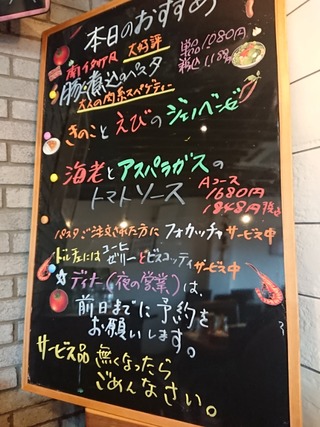 本日のおすすめ
南イタリア 大好評
豚煮込のパスタ
単品1080円
税込1,188
大人の肉系スパゲティー
きのことえびのジェノベーゼ
海老とアスパラガスの
トマトソース
Aコース
1680円
1848円
パスタご注文された方に フォカッチャ サービス中
ドルチェには コーヒーゼリーとビスコッティ サービス中
☆ディナー(夜の営業)は、
前日までに予約を
お願いします。
サービス品 無くなったら
ごめんなさい。